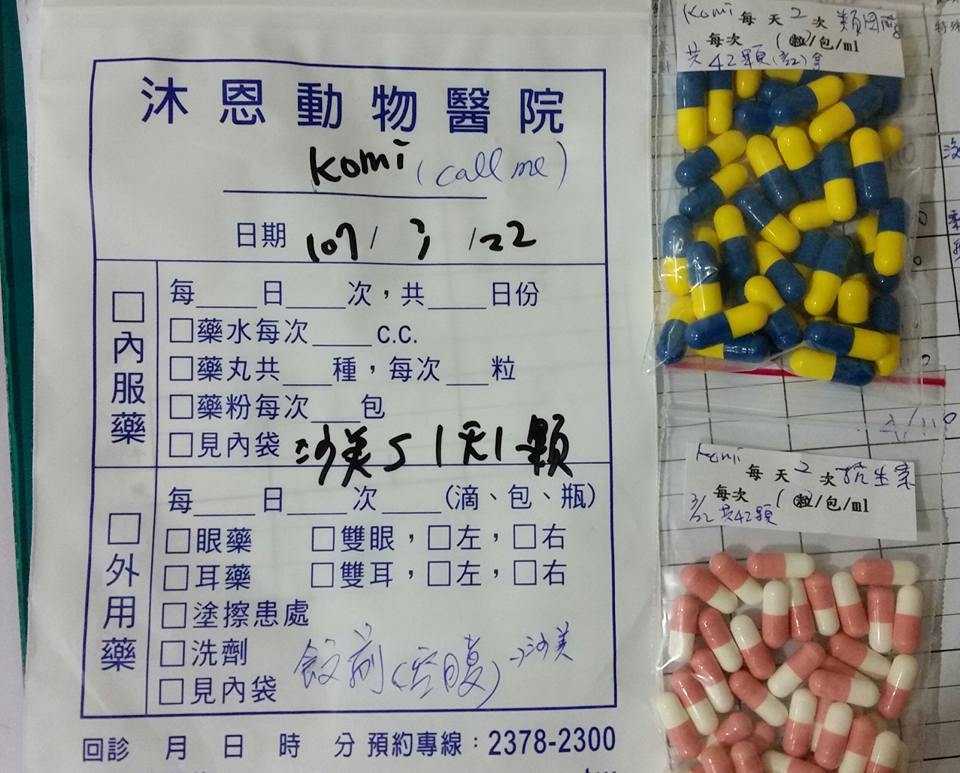 沐恩動物醫院
Komi (call me)
日期 107/3/22
□內服藥
每____日____次，共____日份
□藥水每次____c.c.
□藥丸共___種，每次___粒
□藥粉每次___包
□見內袋 沙美5 1天1顆
□外用藥
每____日____次____(滴、包、瓶)
□眼藥 □雙眼，□左，□右
□耳藥 □雙耳，□左，□右
□塗擦患處
□洗劑
□見內袋
錠劑(空腹)→沙美
回診 月 日 時 分 預約專線：2378-2300
Komi 每天2次 類固醇
每次 (粒)/包/ml
共42顆(3/22)
Komi 每天2次 抗生素
每次 (粒)/包/ml
3/22 共42顆